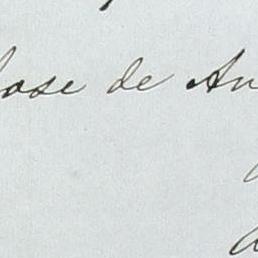 Jose de An